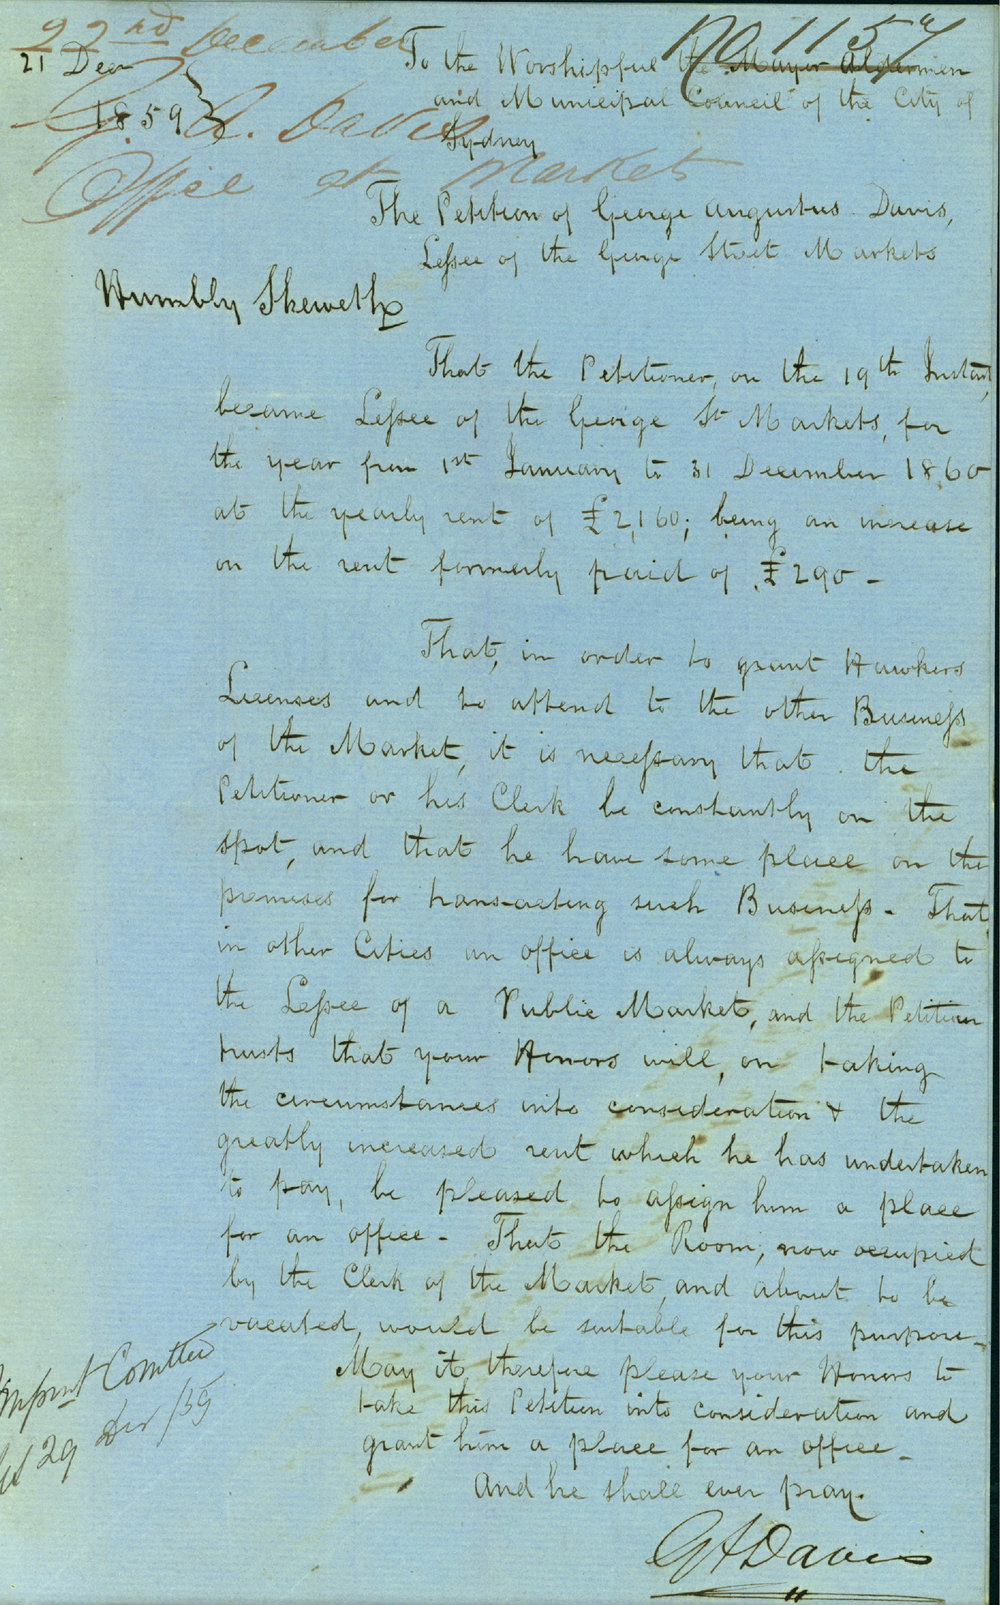 22nd December
No 1157
21 Decr
1859
G. A. Davis
Office at Market
To the Worshipful the Mayor Aldermen
and Municipal Council of the City of
Sydney
The Petition of George Augustus Davis,
Lessee of the George Street Markets
Humbly Sheweth
That the Petitioner, on the 19th Instant,
became Lessee of the George St Markets, for
the year from 1st January to 31 December 1860
at the yearly rent of £2,160; being an increase
on the rent formerly paid of £290 -
That, in order to grant Hawkers
Licenses and to attend to the other Business
of the Market, it is necessary that the
Petitioner or his Clerk be constantly on the
spot, and that he have some place on the
premises for transacting such Business - That
in other Cities an office is always assigned to
the Lessee of a Public Market, and the Petitioner
trusts that your Honors will, on taking
the circumstances into consideration & the
greatly increased rent which he has undertaken
to pay, be pleased to assign him a place
for an office - That the Room, now occupied
by the Clerk of the Market, and about to be
vacated, would be suitable for this purpose -
May it therefore please your Honors to
take this Petition into consideration and
grant him a place for an office -
And he shall ever pray.
GADavis
Impvt Comttee
29 Decr /59